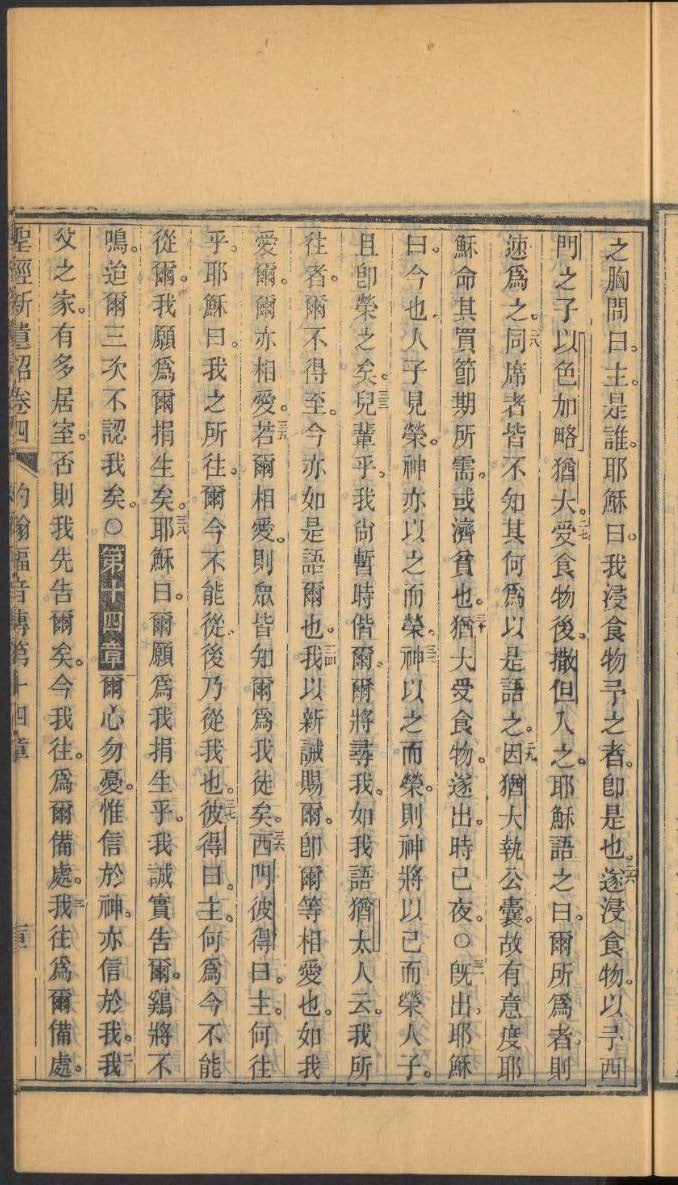 之胸問曰。主是誰。耶穌曰。我浸食物予之者。卽是也。二六遂浸食物。以予西
門之子以色加略猶大。二七受食物後。撒但入之。耶穌語之曰。爾所爲者。則
速爲之。二八同席者皆不知其何爲以是語之。二九因猶大執公囊。故有意度耶
穌命其買節期所需。或濟貧也。三十猶大受食物。遂出。時已夜。〇三一旣出。耶穌
曰。今也人子見榮。神亦以之而榮。三二神以之而榮。則神將以己而榮人子。
且卽榮之矣。三三兒輩乎。我尙暫時偕爾。爾將尋我。如我語猶太人云。我所
往者。爾不得至。今亦如是語爾也。三四我以新誡賜爾。卽爾等相愛也。如我
愛爾。爾亦相愛。三五若爾相愛。則眾皆知爾爲我徒矣。三六西門彼得曰。主。何往
乎。耶穌曰。我之所往。爾今不能從。後乃從我也。三七彼得曰。主。何爲今不能
從爾。我願爲爾捐生矣。三八耶穌曰。爾願爲我捐生乎。我誠實告爾。鷄將不
鳴。迨爾三次不認我矣。〇第十四章一爾心勿憂。惟信於神。亦信於我。二我
父之家。有多居室。否則我先告爾矣。今我往。爲爾備處。三我往爲爾備處。
聖經新遺詔卷四 約翰福音傳第十四章